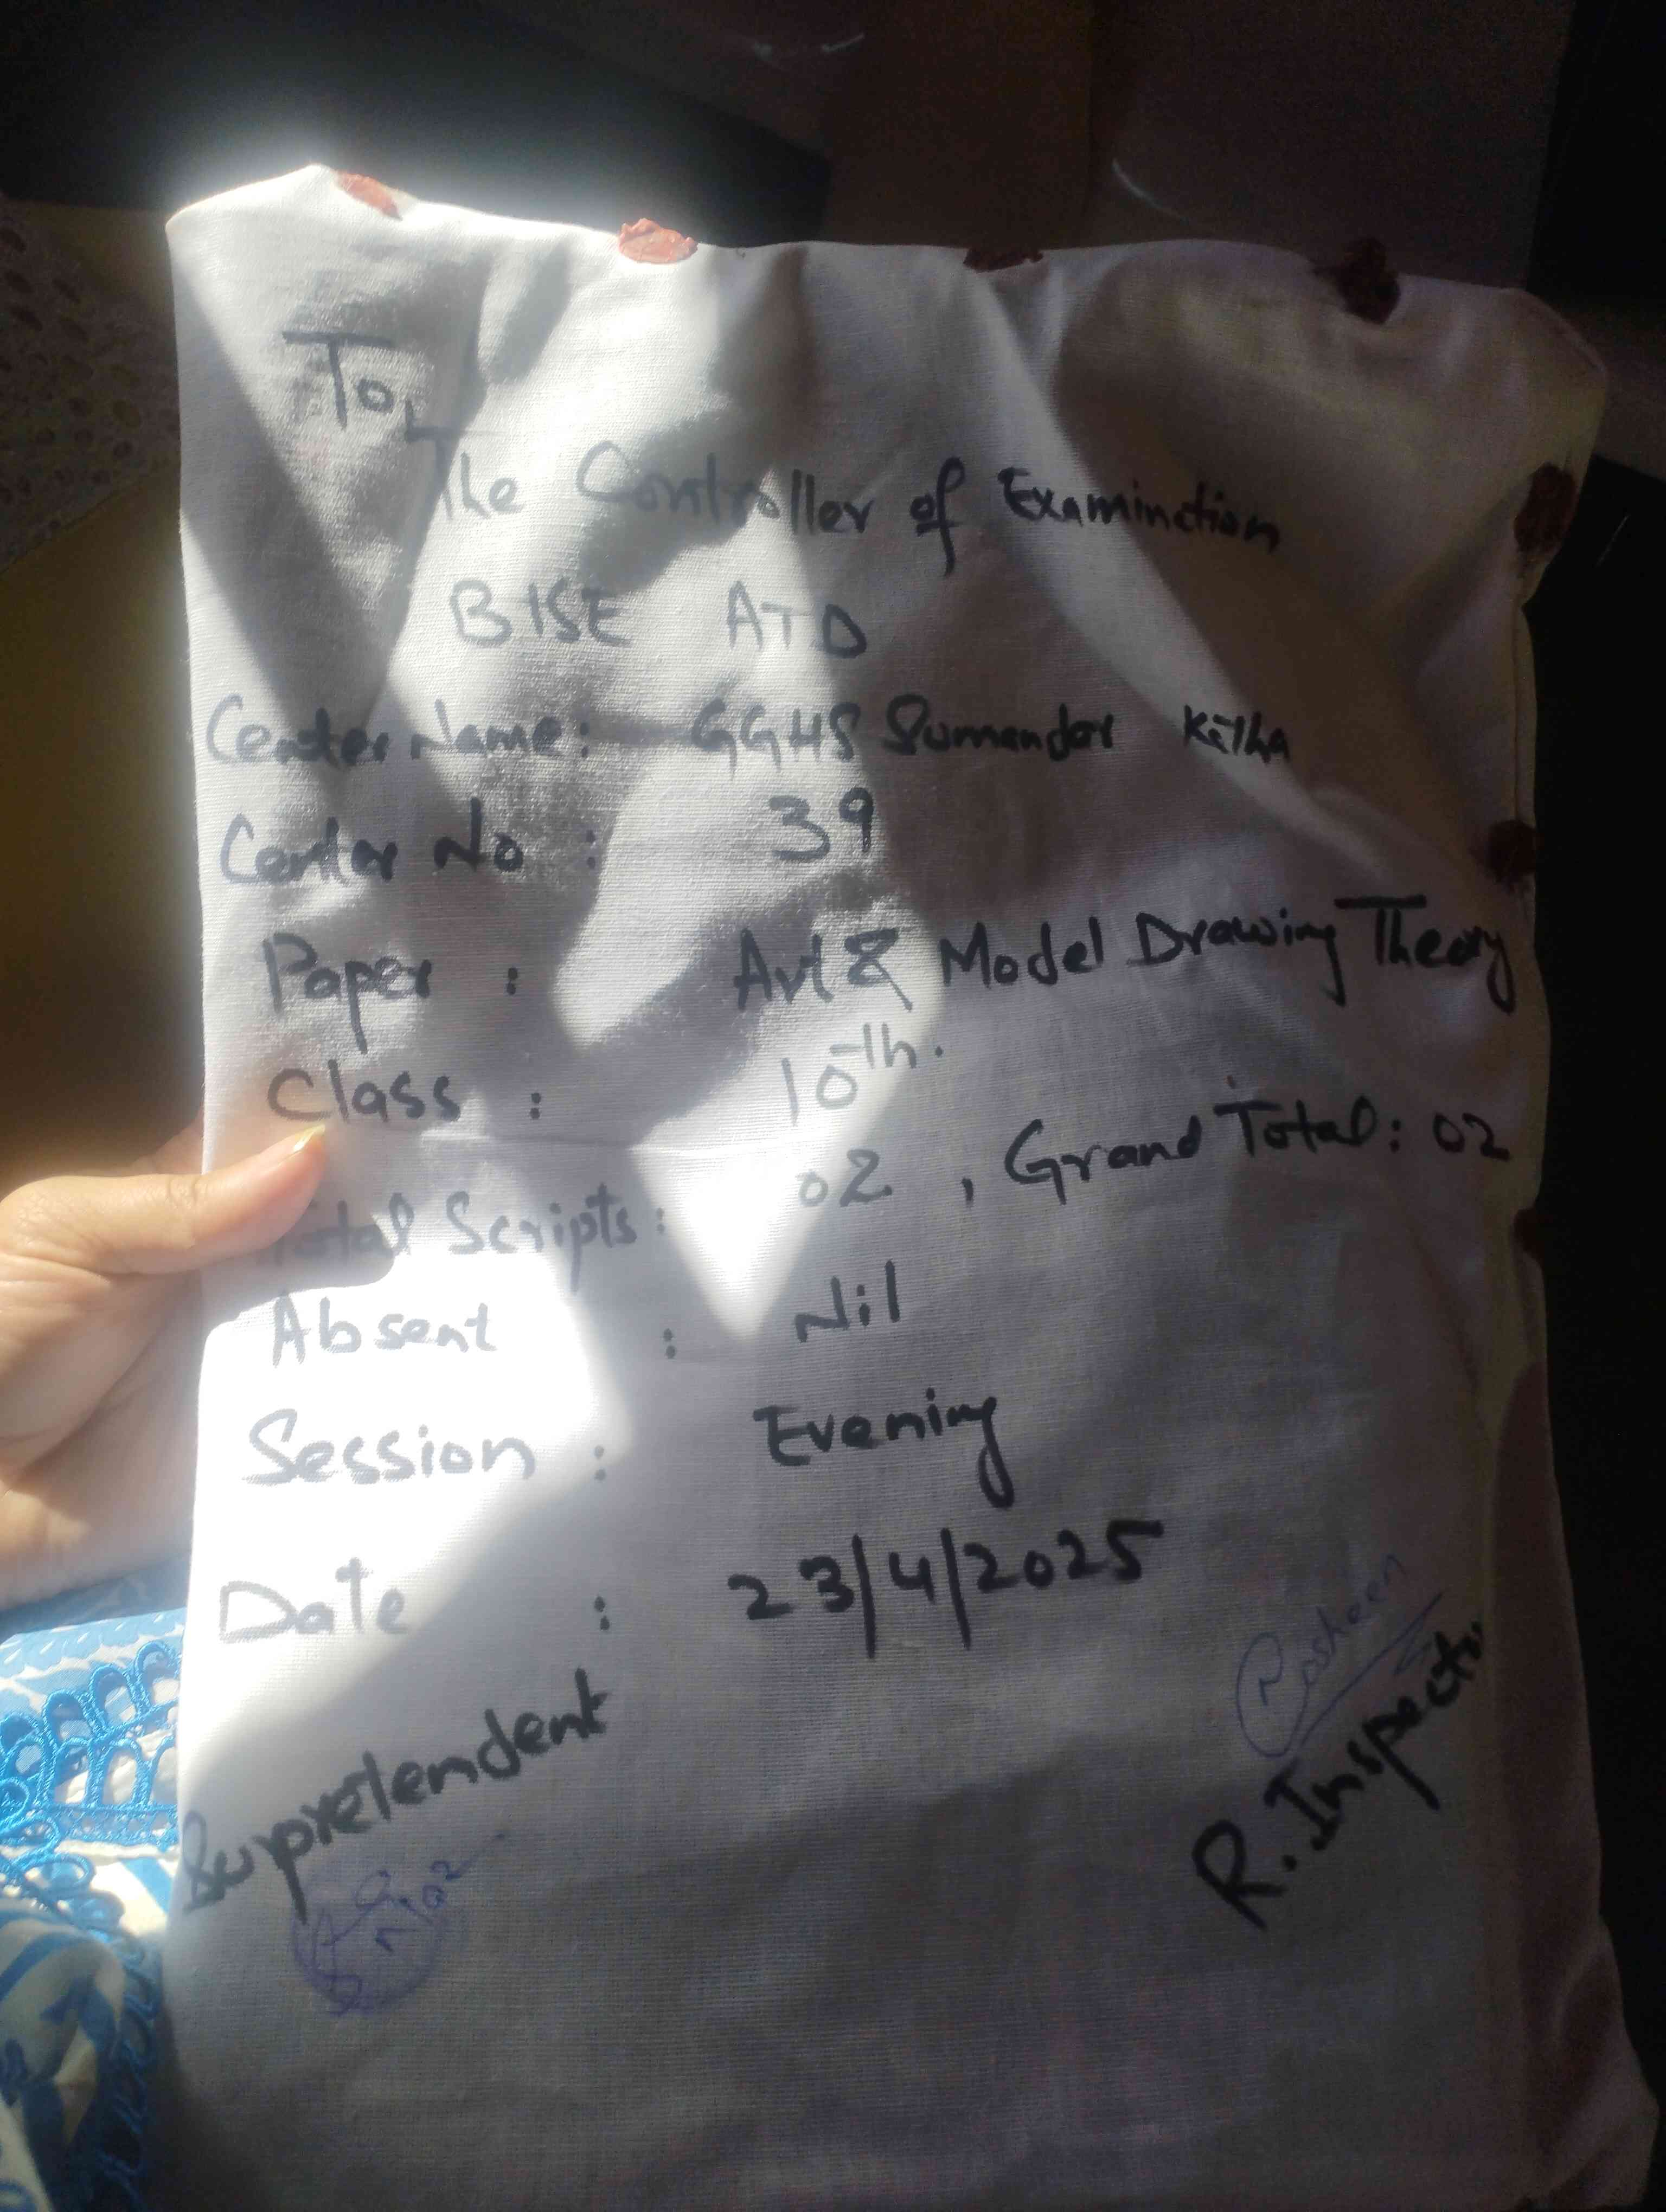 To,
The Controller of Examinction
BISE ATD
Center Name: GGHS Sumandar Katha
Center No : 39
Paper : Art & Model Drawing Theory
Class : 10th.
Total Scripts: 02 , Grand Total: 02
Absent : Nil
Session : Evening
Date : 23/4/2025
Supretendent
R. Inspector